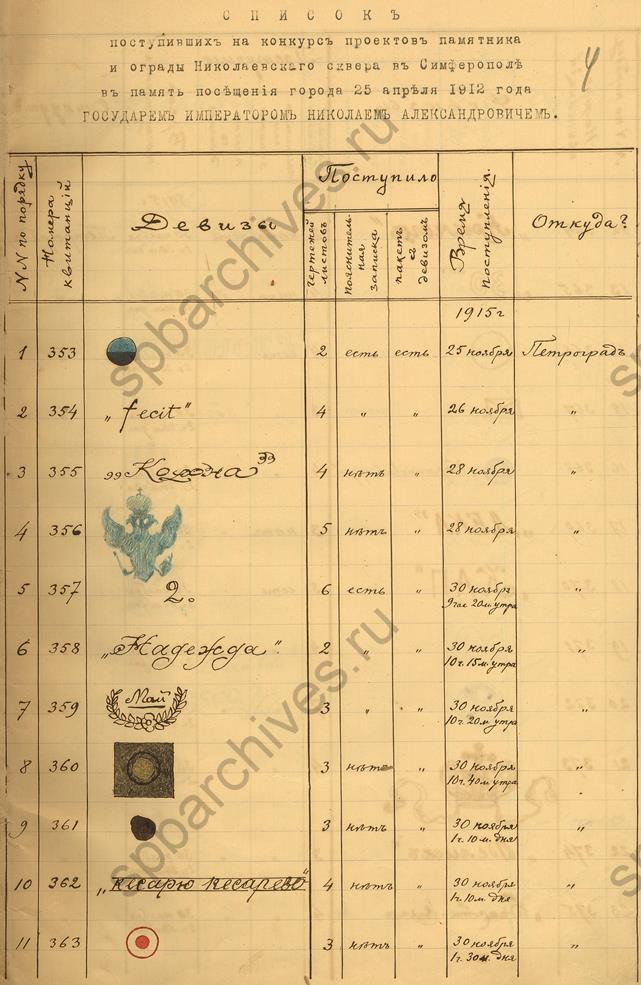 СПИСОКЪ
поступившихъ на конкурсъ проектовъ памятника
и ограды Николаевскаго сквера въ Симферополѣ
въ память посѣщенія города 25 апрѣля 1912 года
ГОСУДАРЕМЪ ИМПЕРАТОРОМЪ НИКОЛАЕМЪ АЛЕКСАНДРОВИЧЕМЪ.
4
NN по порядку Номера квитанцій Девизы Поступило Время поступленія. Откуда?
чертежей листовъ пояснительная записка пакетъ съ девизомъ
1915 г
1 353 2 есть есть 25 ноября Петроградъ
2 354 „fecit" 4 „ „ 26 ноября „
3 355 „Колонна" 4 нѣтъ „ 28 ноября „
4 356 5 нѣтъ „ 28 ноября „
5 357 2. 6 есть „ 30 ноября „
9 час 20 м. утра
6 358 „Надежда". 2 „ „ 30 ноября „
10 ч. 15 м. утра
7 359 Май 3 „ „ 30 ноября „
10 ч. 20 м. утра
8 360 3 нѣтъ „ 30 ноября „
10 ч. 40 м. утра
9 361 3 нѣтъ „ 30 ноября „
1 ч. 10 м. дня
10 362 „кесарю кесарево" 4 нѣтъ „ 30 ноября „
1 ч. 10 м. дня
11 363 3 нѣтъ „ 30 ноября „
1 ч. 30 м. дня
spbarchives.ru
spbarchives.ru